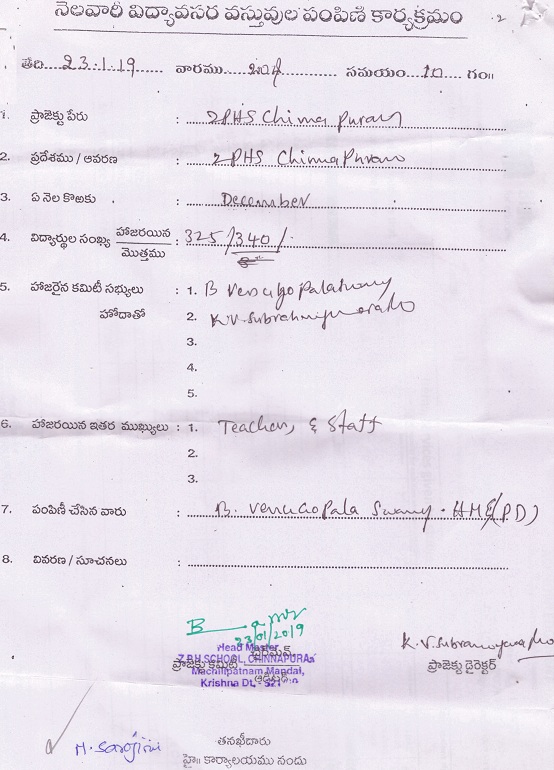 నెలవారీ విద్యావసర వస్తువుల పంపిణీ కార్యక్రమం
తేది 23.1.19 వారము సమయం 10 గం॥
1. ప్రాజెక్టు పేరు : ZPHS Chinnapuram
2. ప్రదేశము / ఆవరణ : ZPHS Chinnapuram
3. ఏ నెల కొఱకు : December
4. విద్యార్థుల సంఖ్య హాజరయిన / మొత్తము : 325/340/-
5. హాజరైన కమిటీ సభ్యులు : 1. B Venugopalaswamy
హోదాతో 2. K.V. Subrahmanya
3.
4.
5.
6. హాజరయిన ఇతర ముఖ్యులు : 1. Teachers & Staff
2.
3.
7. పంపిణీ చేసిన వారు : B. Venugopala Swamy - HM (PD)
8. వివరణ / సూచనలు :
23/01/2019
Head Master
Z.P.H.SCHOOL, CHINNAPURAM
ప్రాజెక్టు కమిటీ
Machilipatnam Mandal,
Krishna Dt.
ప్రాజెక్టు డైరెక్టర్
H. Sarojini
తనఖీదారు
హై॥ కార్యాలయము నందు